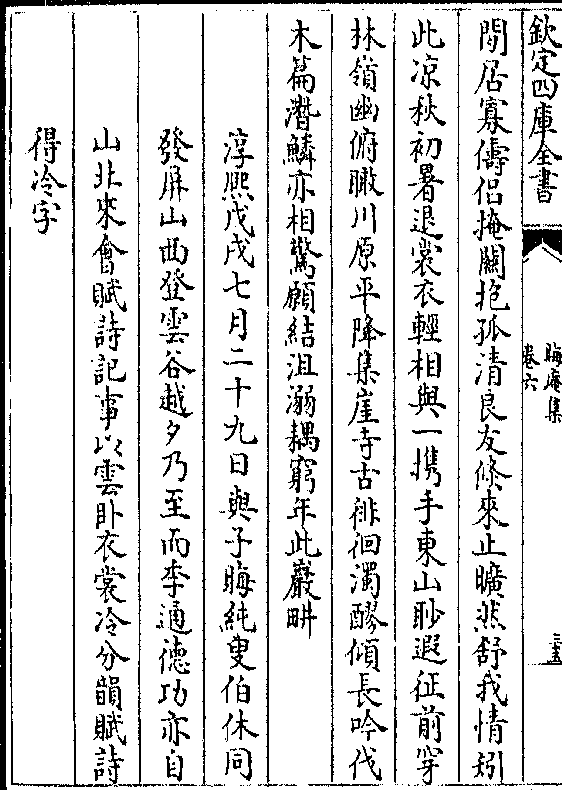 欽定四庫全書
晦庵集
卷六
三五
閒居寡儔侣掩關抱孤清良友倐來止曠然舒我情矧
此凉秋初暑退裳衣輕相與一携手東山聊遐征前穿
林嶺幽俯瞰川原平降集崖寺古徘徊濁醪傾長吟伐
木篇潛鱗亦相驚願結沮溺耦窮年此巖畊
淳熙戊戌七月二十九日與子晦純叟伯休同
發屏山西登雲谷越夕乃至而李通德功亦自
山北來會賦詩記事以雲卧衣裳冷分韻賦詩
得冷字